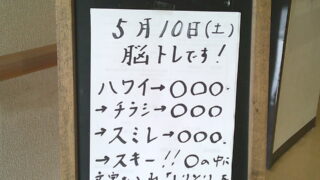 5月10日(土)
脳トレです!
ハワイ→〇〇〇
→チラシ→〇〇〇
→スミレ→〇〇〇.
→スキー!!〇の中に